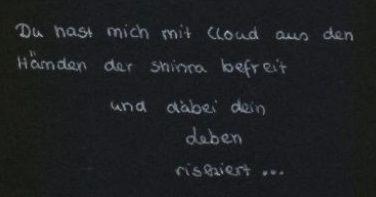 Du hast mich mit Cloud aus den
Händen der shinra befreit
und dabei dein
Leben
risskiert ...